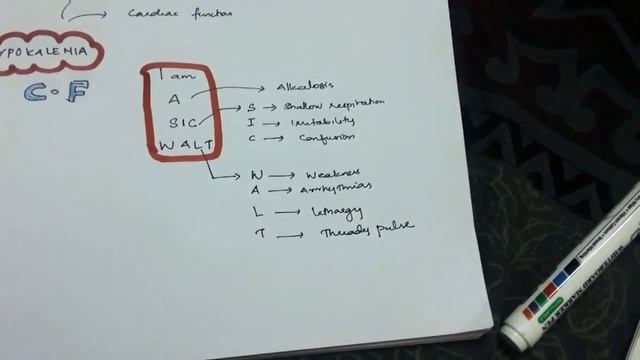 Cardiac function
YPOKALEMIA
C.F
I am
A → Alkalosis
SIC → S → Shallow respiration
I → Irritability
C → Confusion
WALT → W → Weakness
A → Arrhythmias
L → lethargy
T → Thready pulse
WHITEBOARD MARKER PEN